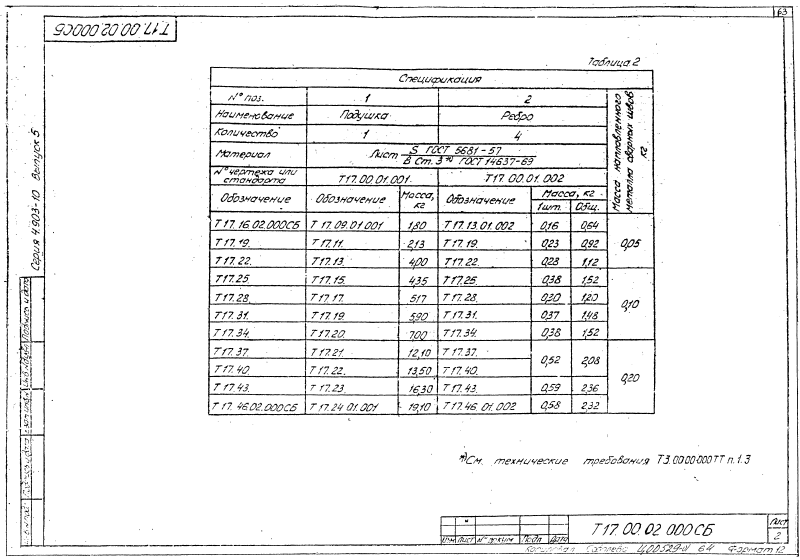 63
Т17.00.02.000СБ
Таблица 2
Спецификация
Масса наплавленного металла сварных швов кг
№ поз. 1 2
Наименование Подушка Ребро
Количество 1 4
Материал Лист S ГОСТ 5681-57
В Ст. 3 *) ГОСТ 14637-69
№ чертежа или стандарта Т17.00.01.001 Т17.00.01.002
Обозначение Обозначение Масса, кг Обозначение Масса, кг
1шт. Общ.
Т17.16.02.000СБ Т17.09.01.001 1,80 Т17.13.01.002 0,16 0,64
Т17.19. Т17.11. 2,13 Т17.19. 0,23 0,92 0,05
Т17.22. Т17.13. 4,00 Т17.22. 0,28 1,12
Т17.25. Т17.15. 4,35 Т17.25. 0,38 1,52
Т17.28. Т17.17. 5,17 Т17.28. 0,30 1,20 0,10
Т17.31. Т17.19. 5,90 Т17.31. 0,37 1,48
Т17.34. Т17.20. 7,00 Т17.34. 0,38 1,52
Т17.37. Т17.21. 12,10 Т17.37. 0,52 2,08
Т17.40. Т17.22. 13,50 Т17.40. 0,20
Т17.43. Т17.23. 16,30 Т17.43. 0,59 2,36
Т17.46.02.000СБ Т17.24.01.001 19,10 Т17.46.01.002 0,58 2,32
*) См. технические требования Т3.00.00.000ТТ п.1.3
Серия 4.903-10 Выпуск 5
Изм. Лист № докум. Подп. Дата
Т17.00.02.000СБ
Лист
2
Копировал Ц00529-01 64 Формат 12